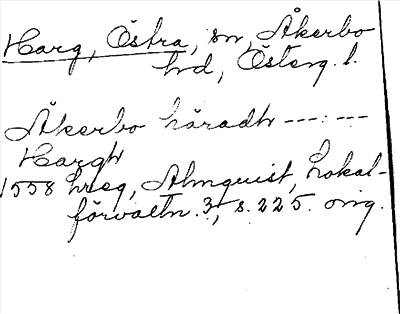 Harg, Östra, sn, Åkerbo
hd, Österg. l.
Åkerbo häradh ---:---
Hargh
1558 hreg, Almquist, Lokal-
förvaltn. 3, s. 225. orig.